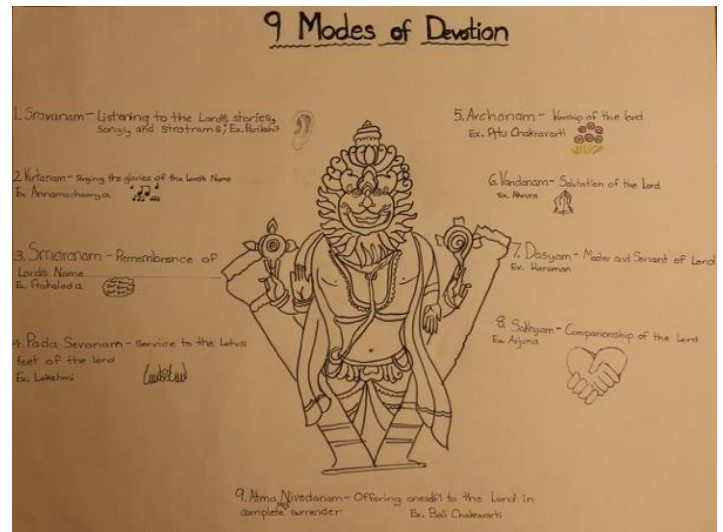 9 Modes of Devotion
1. Sravanam - Listening to the Lord's stories,
songs, and stratrams; Ex. Parikshit
2. Kirtanam - Singing the glories of the Lord's Name
Ex. Annamacharya
3. Smaranam - Remembrance of
Lord's Name
Ex. Prahalada
4. Pada Sevanam - Service to the Lotus
feet of the lord
Ex. Lakshmi
5. Archanam - Worship of the lord
Ex. Pritu Chakravarti
6. Vandanam - Salutation of the Lord
Ex.
7. Dasyam - Master and Servant of Lord
Ex. Hanuman
8. Sakhyam - Companionship of the Lord
Ex. Arjuna
9. Atma Nivedanam - Offering oneself to the Lord in
complete surrender Ex. Bali Chakravarti